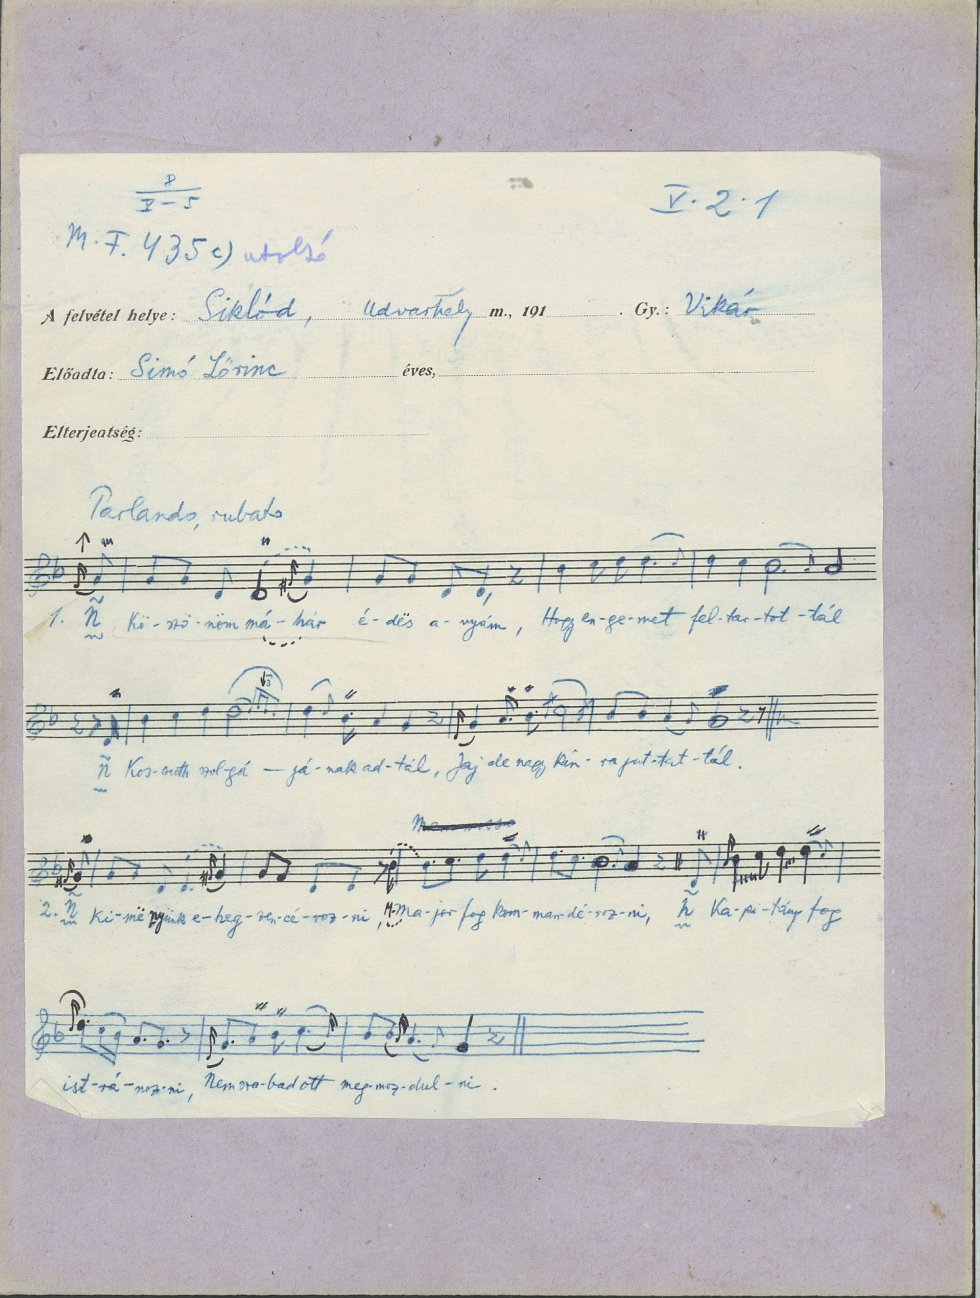 8
V - 5
V. 2. 1
M. F. 435 c) utolsó
A felvétel helye: Siklód, Udvarhely m., 191 . Gy.: Vikár
Előadta: Simó Lőrinc éves,
Elterjeatség:
Parlando, rubato
1. ñ Kö-szö-nöm má-hár é-dës a-nyám, Hogy en-ge-met fel-tar-tot-tál
ñ Kos-suth szol-gá — já-nak ad-tál, Jaj de nagy kín-ra jut-tat-tál.
2. ñ Ki-më nyünk e-heg-zen-cé-roz-ni, M-Ma-jor fog kom-man-dé-roz-ni, ñ Ka-pi-tány fog
ist-rá-moz-ni, Nem sza-bad ott meg-moz-dul-ni.